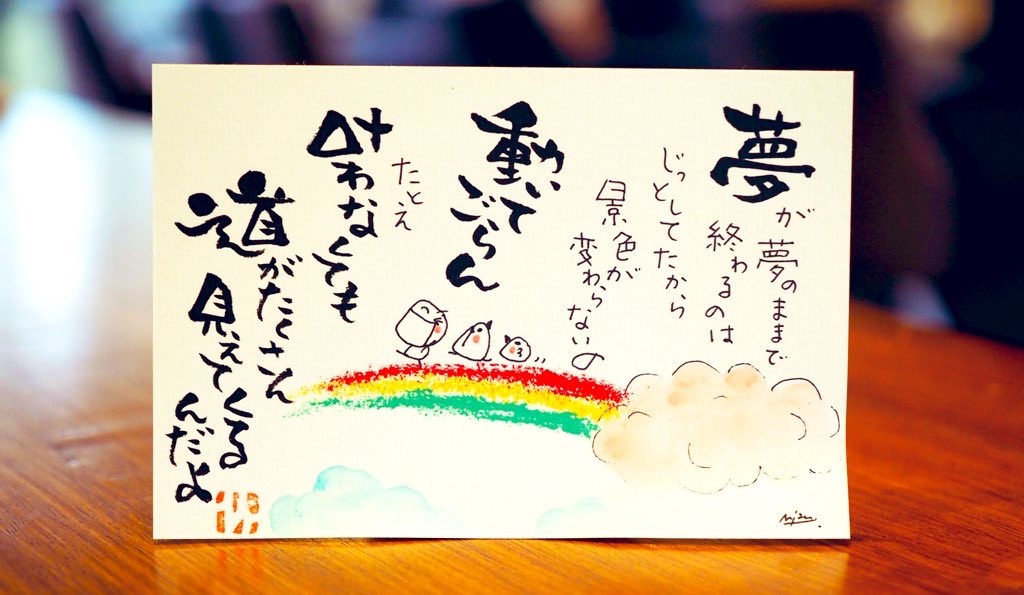 夢が
夢のままで
終わるのは
じっとしてたから
景色が
変わらないの
動いて
ごらん
たとえ
叶わなくても
道がたくさん
見えてくる
んだよ